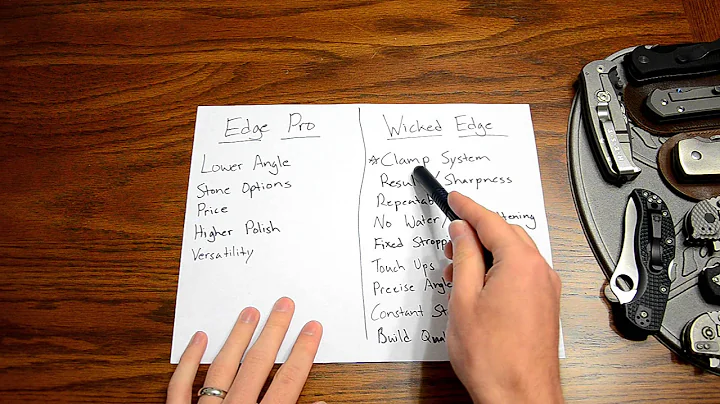 Edge Pro
Lower Angle
Stone Options
Price
Higher Polish
Versatility
Wicked Edge
☆ Clamp System
/ Sharpness
No Water/
Fixed
Touch Ups
Precise
Constant
Build